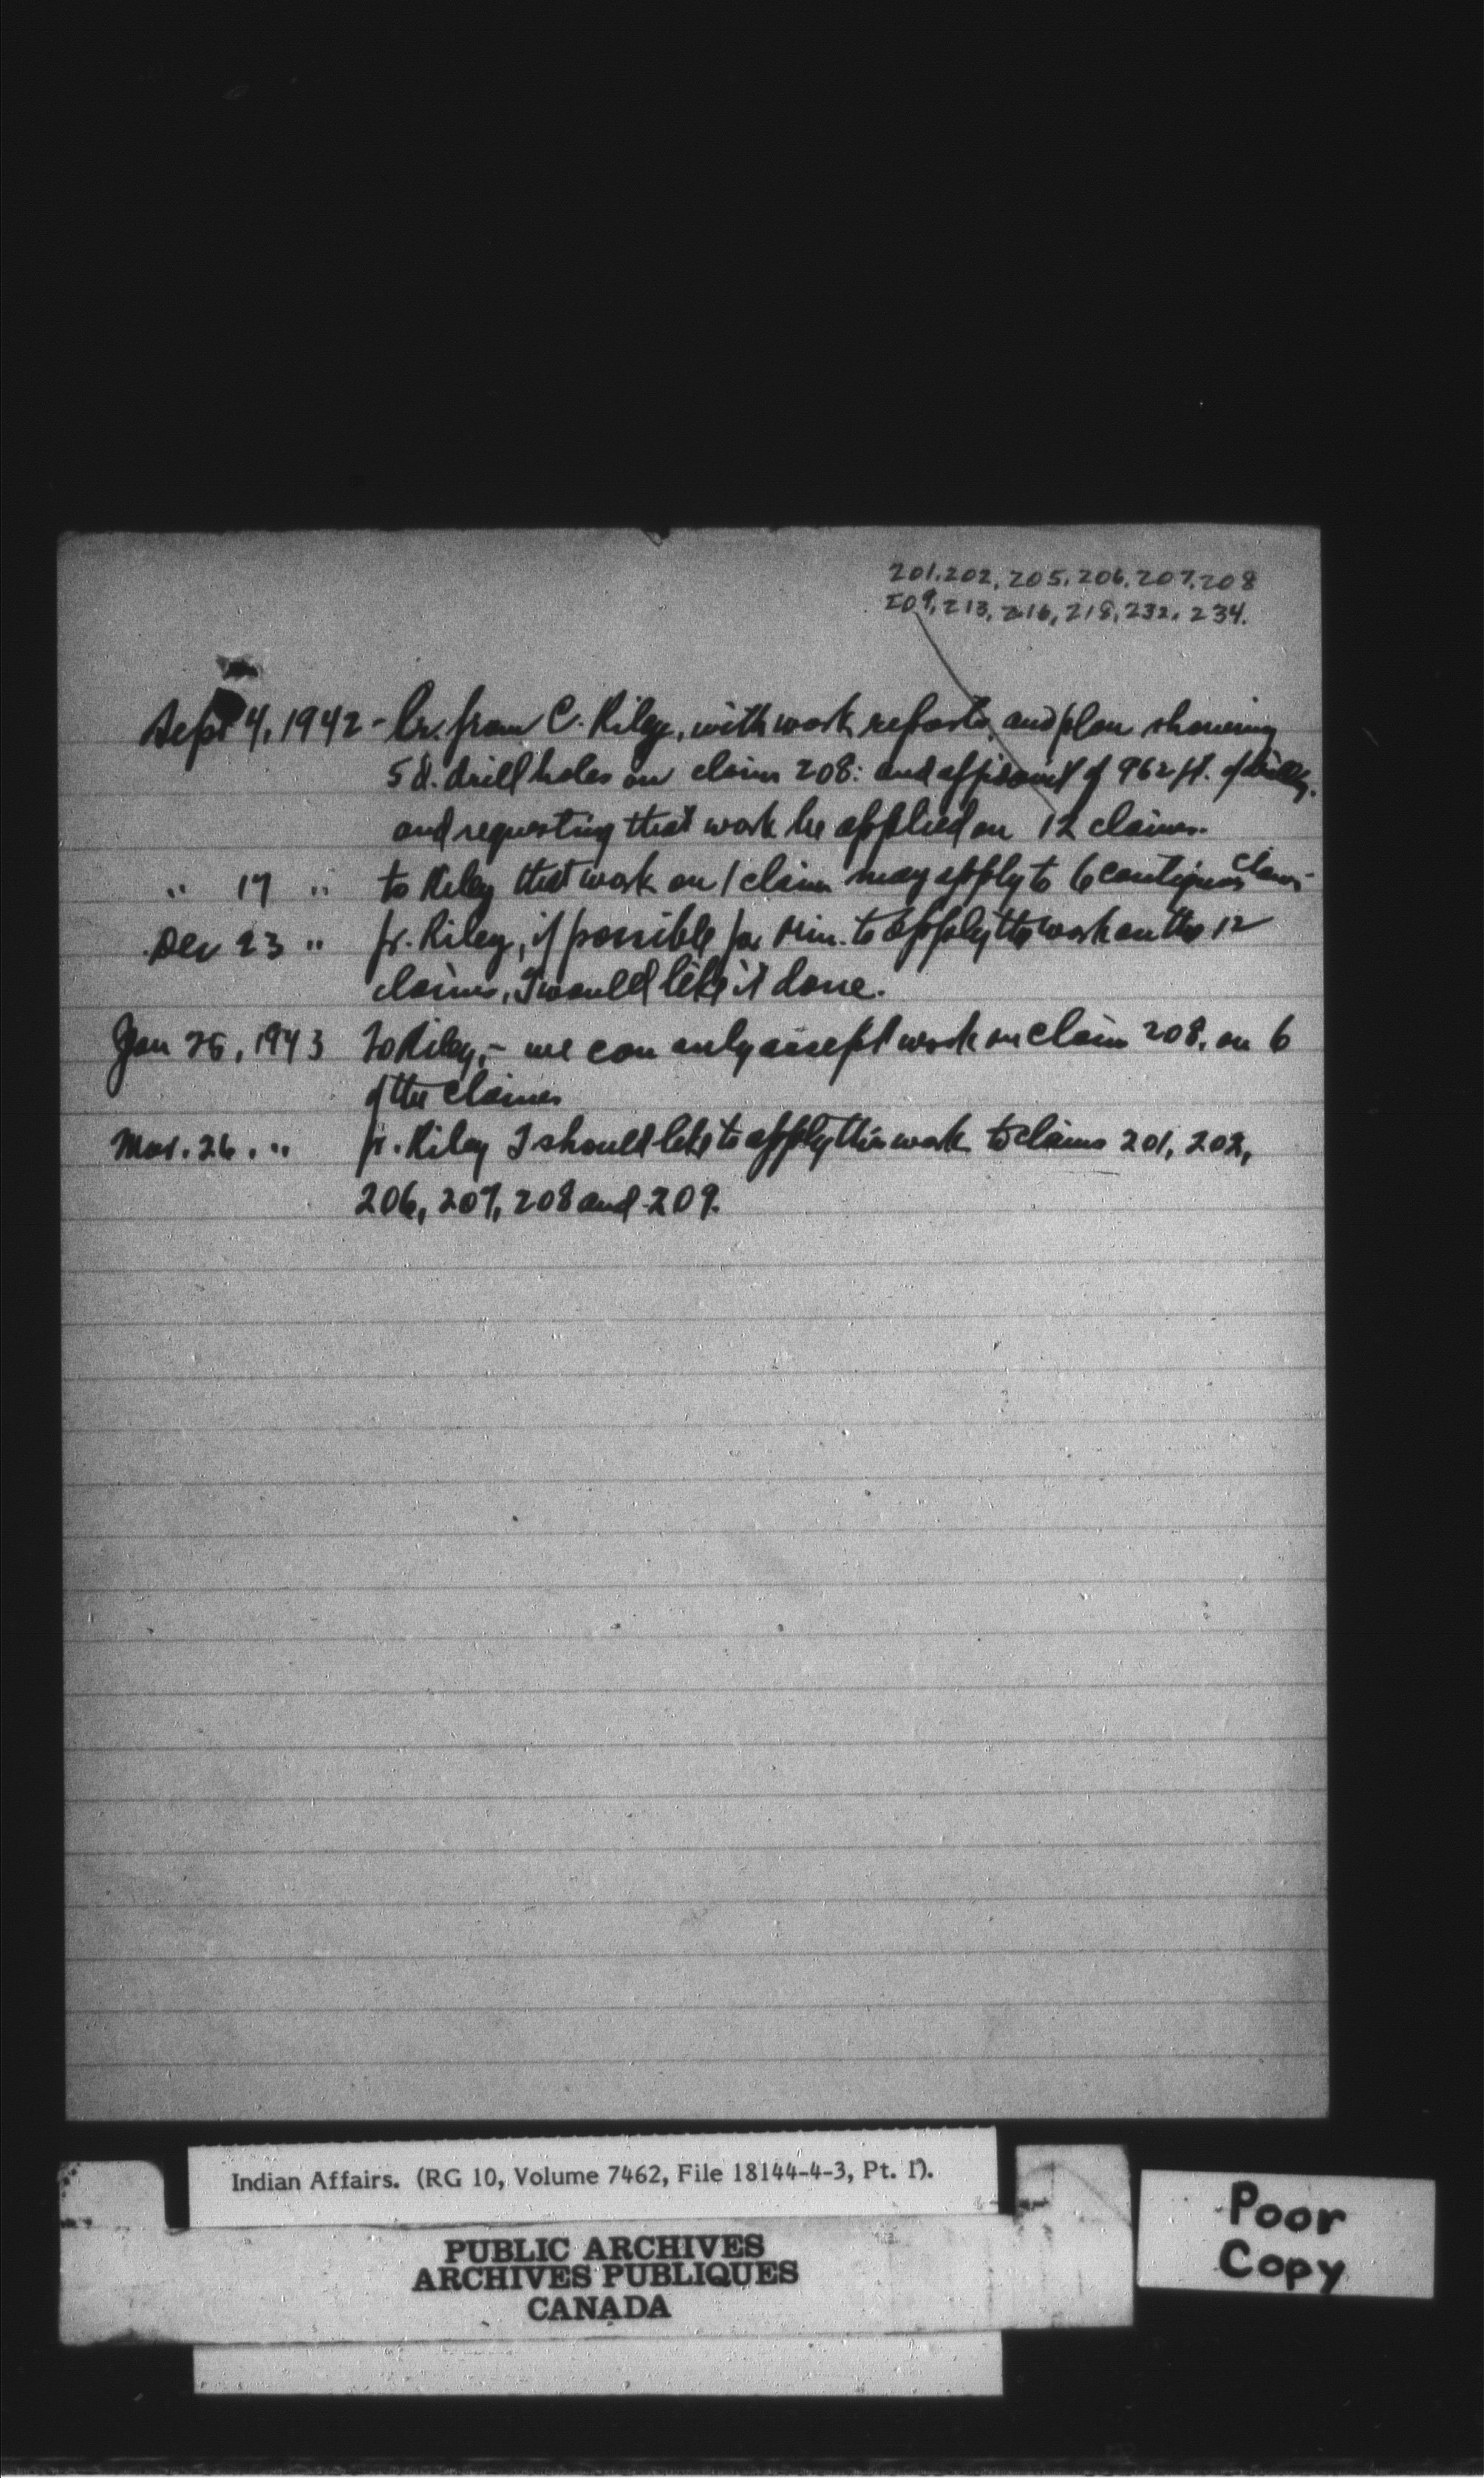 201, 202, 205, 206, 207, 208
209, 213, 216, 218, 232, 234.
Sept 4, 1942 - Lr. from C. Riley, with work reports, and plan showing
5 d. drill holes on claim 208: and affidavit of 962 ft. of drillg.
and requesting that work be applied on 12 claims.
" 17 " to Riley that work on 1 claim may apply to 6 contiguous claims
Dec 23 " fr. Riley, if possible for Min. to apply the work on the 12
claims, I would like it done.
Jan 25, 1943 To Riley, - we can only accept work on claim 208, on 6
of the claims
Mar. 26. " fr. Riley I should like to apply this work to claims 201, 202,
206, 207, 208 and 209.
Indian Affairs. (RG 10, Volume 7462, File 18144-4-3, Pt. 1).
PUBLIC ARCHIVES
ARCHIVES PUBLIQUES
CANADA
Poor
Copy